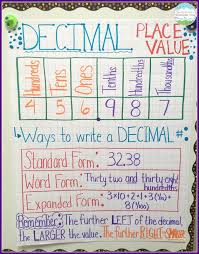 DECIMAL PLACE VALUE
Hundreds Tens Ones Tenths Hundredths Thousandths
4 5 6 9 8 7
Ways to write a DECIMAL #
Standard Form: 32.38
Word Form: Thirty two and thirty eight hundredths
Expanded Form: 3×10 + 2×1 + 3(1/10) + 8(1/100)
Remember: The further LEFT of the decimal,
the LARGER the value. The further RIGHT